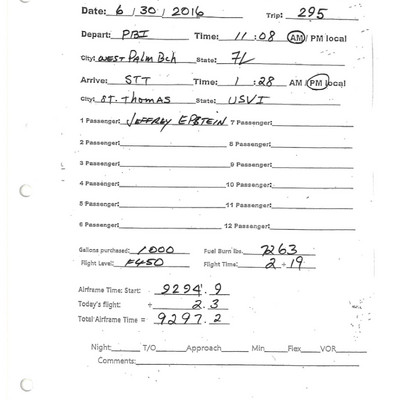 Date: 6 / 30 / 2016 Trip: 295
Depart: PBI Time: 11 : 08 AM / PM local
City: WEST PALM Bch State: FL
Arrive: STT Time: 1 : 28 AM / PM local
City: ST. THOMAS State: USVI
1 Passenger: JEFFREY EPSTEIN 7 Passenger:
2 Passenger: 8 Passenger:
3 Passenger: 9 Passenger:
4 Passenger: 10 Passenger:
5 Passenger: 11 Passenger:
6 Passenger: 12 Passenger:
Gallons purchased: 1000 Fuel Burn lbs. 7263
Flight Level: F450 Flight Time: 2 + 19
Airframe Time: Start: 9294.9
Today's flight: + 2.3
Total Airframe Time = 9297.2
Night: T/O Approach Min Flex VOR
Comments: